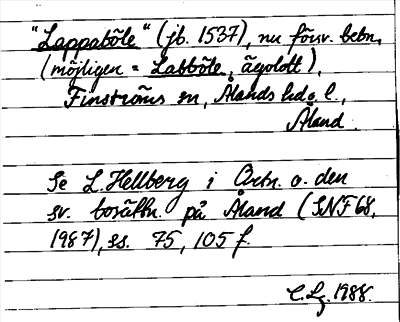 "Lappaböle" (jb. 1537), nu försv. bebn,
(möjligen = Labböle, ägolott),
Finströms sn, Ålands hd o. l.,
Åland.
Se L. Hellberg i Ortn. o. den
sv. bosättn. på Åland (SNF 68,
1987), ss. 75, 105 f.
C. Lg. 1988.